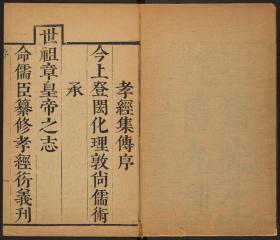 孝經集傳序
今上登閎化理敦尙儒術
承
世祖章皇帝之志
命儒臣纂修孝經衍義刊